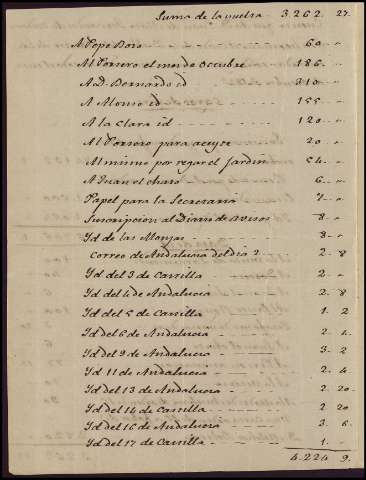 Suma de la vuelta - 3.262. 27.
A Pepe Boro - - - - - - 60 "
Al Portero el mes de Octubre - - 186 "
A D. Bernardo id - - - - 310 "
A Alonso id - - - - - 155 "
A la Clara id - - - - - 120 "
Al Portero para aceyte - - 20 "
Al mismo por regar el jardin - 54 "
A Juan el - - - - 6 "
Papel para la Secretaria - - 7 "
Suscripcion al Diario de avisos - 8 "
Yd de las Monjas - - - - 8 "
Correo de Andalucia del dia 2 - 2 8
Yd del 3 de Castilla - - - - 2 "
Yd del 4 de Andalucia - - - 2 8
Yd del 5 de Castilla - - - - 1 2
Yd del 6 de Andalucia - - - 2 4
Yd del 9 de Andalucia - - - 3 2
Yd 11 de Andalucia - - - 2 4
Yd del 13 de Andalucia - - - 2 20
Yd del 14 de Castilla - - - 2 20
Yd del 16 de Andalucia - - - 3 6
Yd del 17 de Castilla - - - 1 "
4.224 9.